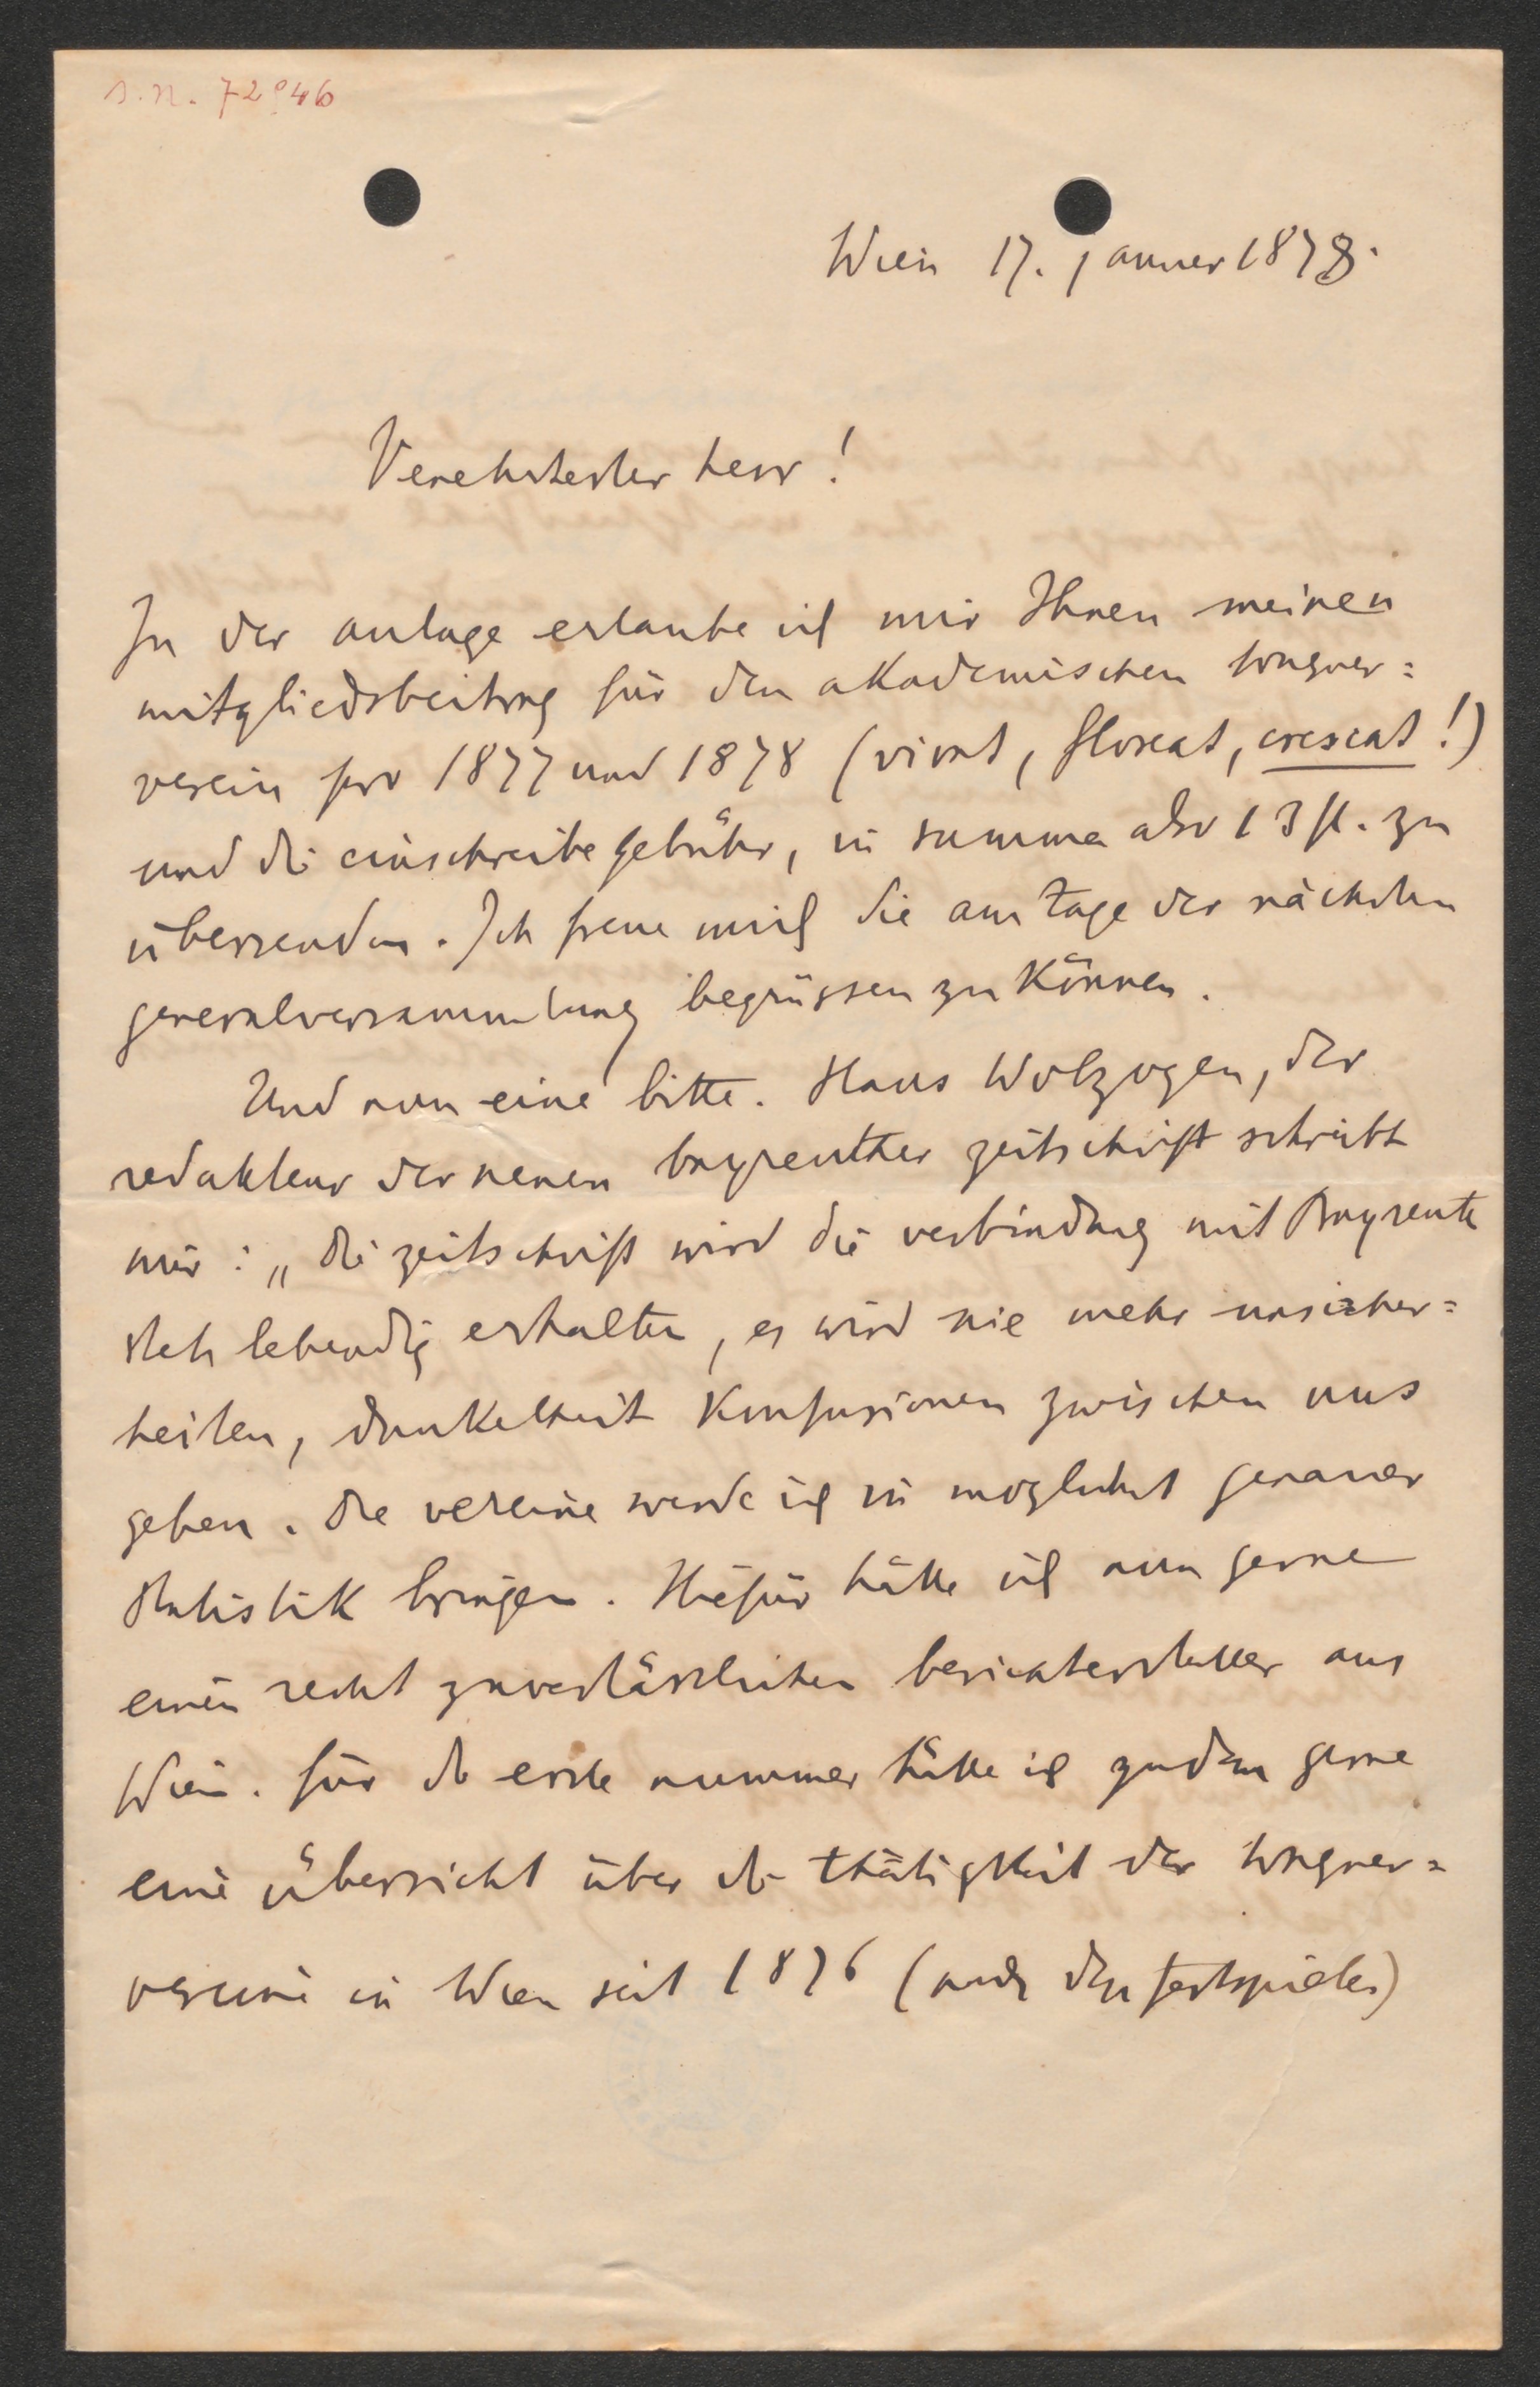 s.n. 72946
Wien 17. januer 1878.
Verehrtester herr!
In der anlage erlaube ich mir Ihnen meinen
mitgliedsbeitrag für den akademischen wagner=
verein pro 1877 und 1878 (vivat, floreat, crescat!)
und die einschreibegebühr, in summa also 13 fl. zu
übersenden. Ich freue mich Sie am tage der nächsten
generalversammlung begrüssen zu können.
Und nun eine bitte. Hans Wolzogen, der
redakteur der neuen bayreuther zeitschrift schreibt
mir: „die zeitschrift wird die verbindung mit Bayreuth
stets lebendig erhalten, es wird nie mehr unsicher=
heiten, dunkelheit konfusionen zwischen uns
geben. Die vereine werde ich in möglichst genauer
statistik bringen. Hiefür hätte ich nun gerne
einen recht zuverlässlichen berichterstatter aus
Wien. für die erste nummer hätte ich zudem gerne
eine übersicht über die thätigkeit der wagner=
vereine in Wien seit 1876 (nach den festspielen)